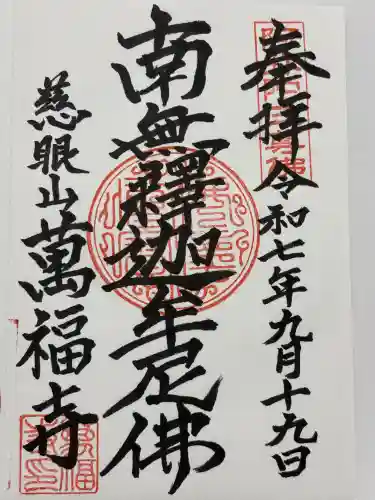 奉拝
令和七年九月十九日
南無釋迦牟尼佛
慈眼山萬福寺